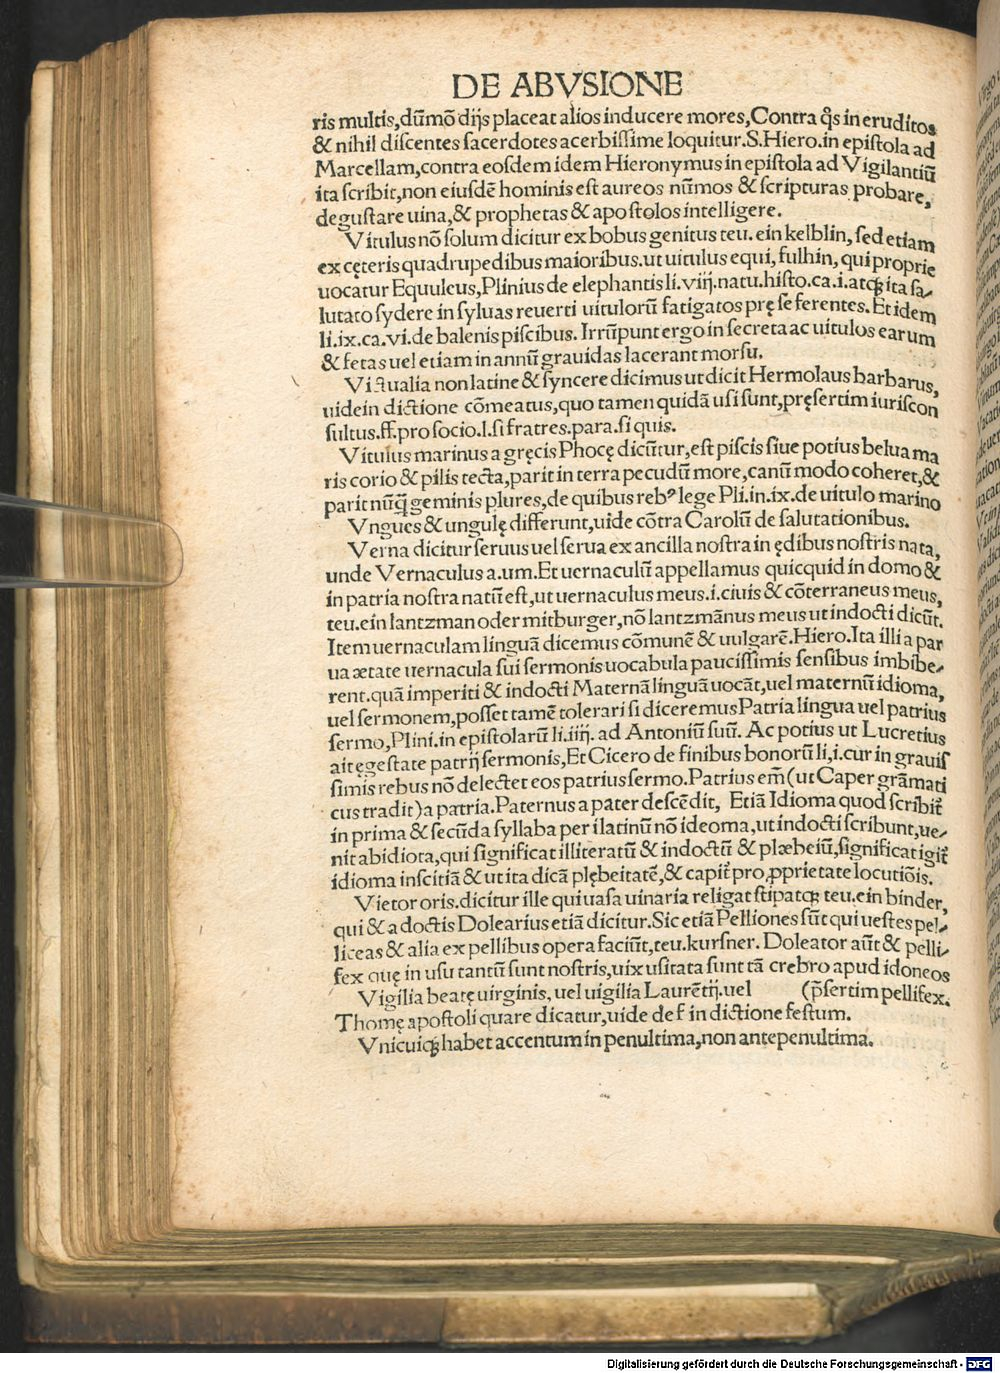 DE ABVSIONE
ris multis,dūmō dijs placeat alios inducere mores,Contra q̄s ineruditos
& nihil discentes sacerdotes acerbissime loquitur.S.Hiero.in epistola ad
Marcellam,contra eosdem idem Hieronymus in epistola ad Vigilantiū
ita scribit,non eiusdē hominis est aureos nūmos & scripturas probare,
degustare uina,& prophetas & apostolos intelligere.
Vitulus nō solum dicitur ex bobus genitus teu. ein kelblin, sed etiam
ex cęteris quadrupedibus maioribus.ut uitulus equi, fulhin, qui proprie
uocatur Equuleus,Plinius de elephantis li.viij.natu.histo.ca.i.atqꝫ ita sa⸗
lutato sydere in syluas reuerti uitulorū fatigatos prę se ferentes. Et idem
li.ix.ca.vi.de balenis piscibus. Irrūpunt ergo in secreta ac uitulos earum
& fetas uel etiam in annū grauidas lacerant morsu.
Victualia non latine & syncere dicimus ut dicit Hermolaus barbarus,
uide in dictione cōmeatus,quo tamen quidā usi sunt,pręsertim iuriscon
sultus.ff.pro socio.l.si fratres.para.si quis.
Vitulus marinus a gręcis Phocę dicūtur,est piscis siue potius belua ma
ris corio & pilis tecta,parit in terra pecudū more,canū modo coheret,&
parit nūq̄ geminis plures,de quibus rebꝰ lege Pli.in.ix.de uitulo marino
Vngues & ungulę differunt,uide cōtra Carolū de salutationibus.
Verna dicitur seruus uel serua ex ancilla nostra in ędibus nostris nata,
unde Vernaculus a.um.Et uernaculū appellamus quicquid in domo &
in patria nostra natū est,ut uernaculus meus.i.ciuis & cōterraneus meus,
teu.ein lantzman oder mitburger,nō lantzmānus meus ut indocti dicūt.
Item uernaculam linguā dicemus cōmunē & uulgarē.Hiero.Ita illi a par
ua ætate uernacula sui sermonis uocabula paucissimis sensibus imbibe⸗
rent.quā imperiti & indocti Maternā linguā uocāt,uel maternū idioma,
uel sermonem,posset tamē tolerari si diceremus Patria lingua uel patrius
sermo,Plini.in epistolarū li.iiij. ad Antoniū suū. Ac potius ut Lucretius
ait ęgestate patrij sermonis,Et Cicero de finibus bonorū li,i.cur in grauis
simis rebus nō delectet eos patrius sermo.Patrius em̄(ut Caper grāmati
cus tradit)a patria.Paternus a pater descēdit, Etiā Idioma quod scribit̄
in prima & secūda syllaba per i latinū nō ideoma,ut indocti scribunt,ue⸗
nit ab idiota,qui significat illiteratū & indoctū & plæbeiū,significat igit̄
idioma inscitiā & ut ita dicā plębeitatē,& capit̄ pro ꝓprietate locutiōis.
Vietor oris.dicitur ille qui uasa uinaria religat stipatqꝫ teu.ein binder,
qui & a doctis Dolearius etiā dicitur.Sic etiā Pelliones sūt qui uestes pel⸗
liceas & alia ex pellibus opera faciūt,teu.kursner. Doleator aūt & pelli⸗
fex quę in usu tantū sunt nostris,uix usitata sunt tā crebro apud idoneos
Vigilia beatę uirginis, uel uigilia Laurētij.uel (p̄sertim pellifex.
Thomę apostoli quare dicatur,uide de f in dictione festum.
Vnicuiqꝫ habet accentum in penultima,non antepenultima.
Digitalisierung gefördert durch die Deutsche Forschungsgemeinschaft - DFG